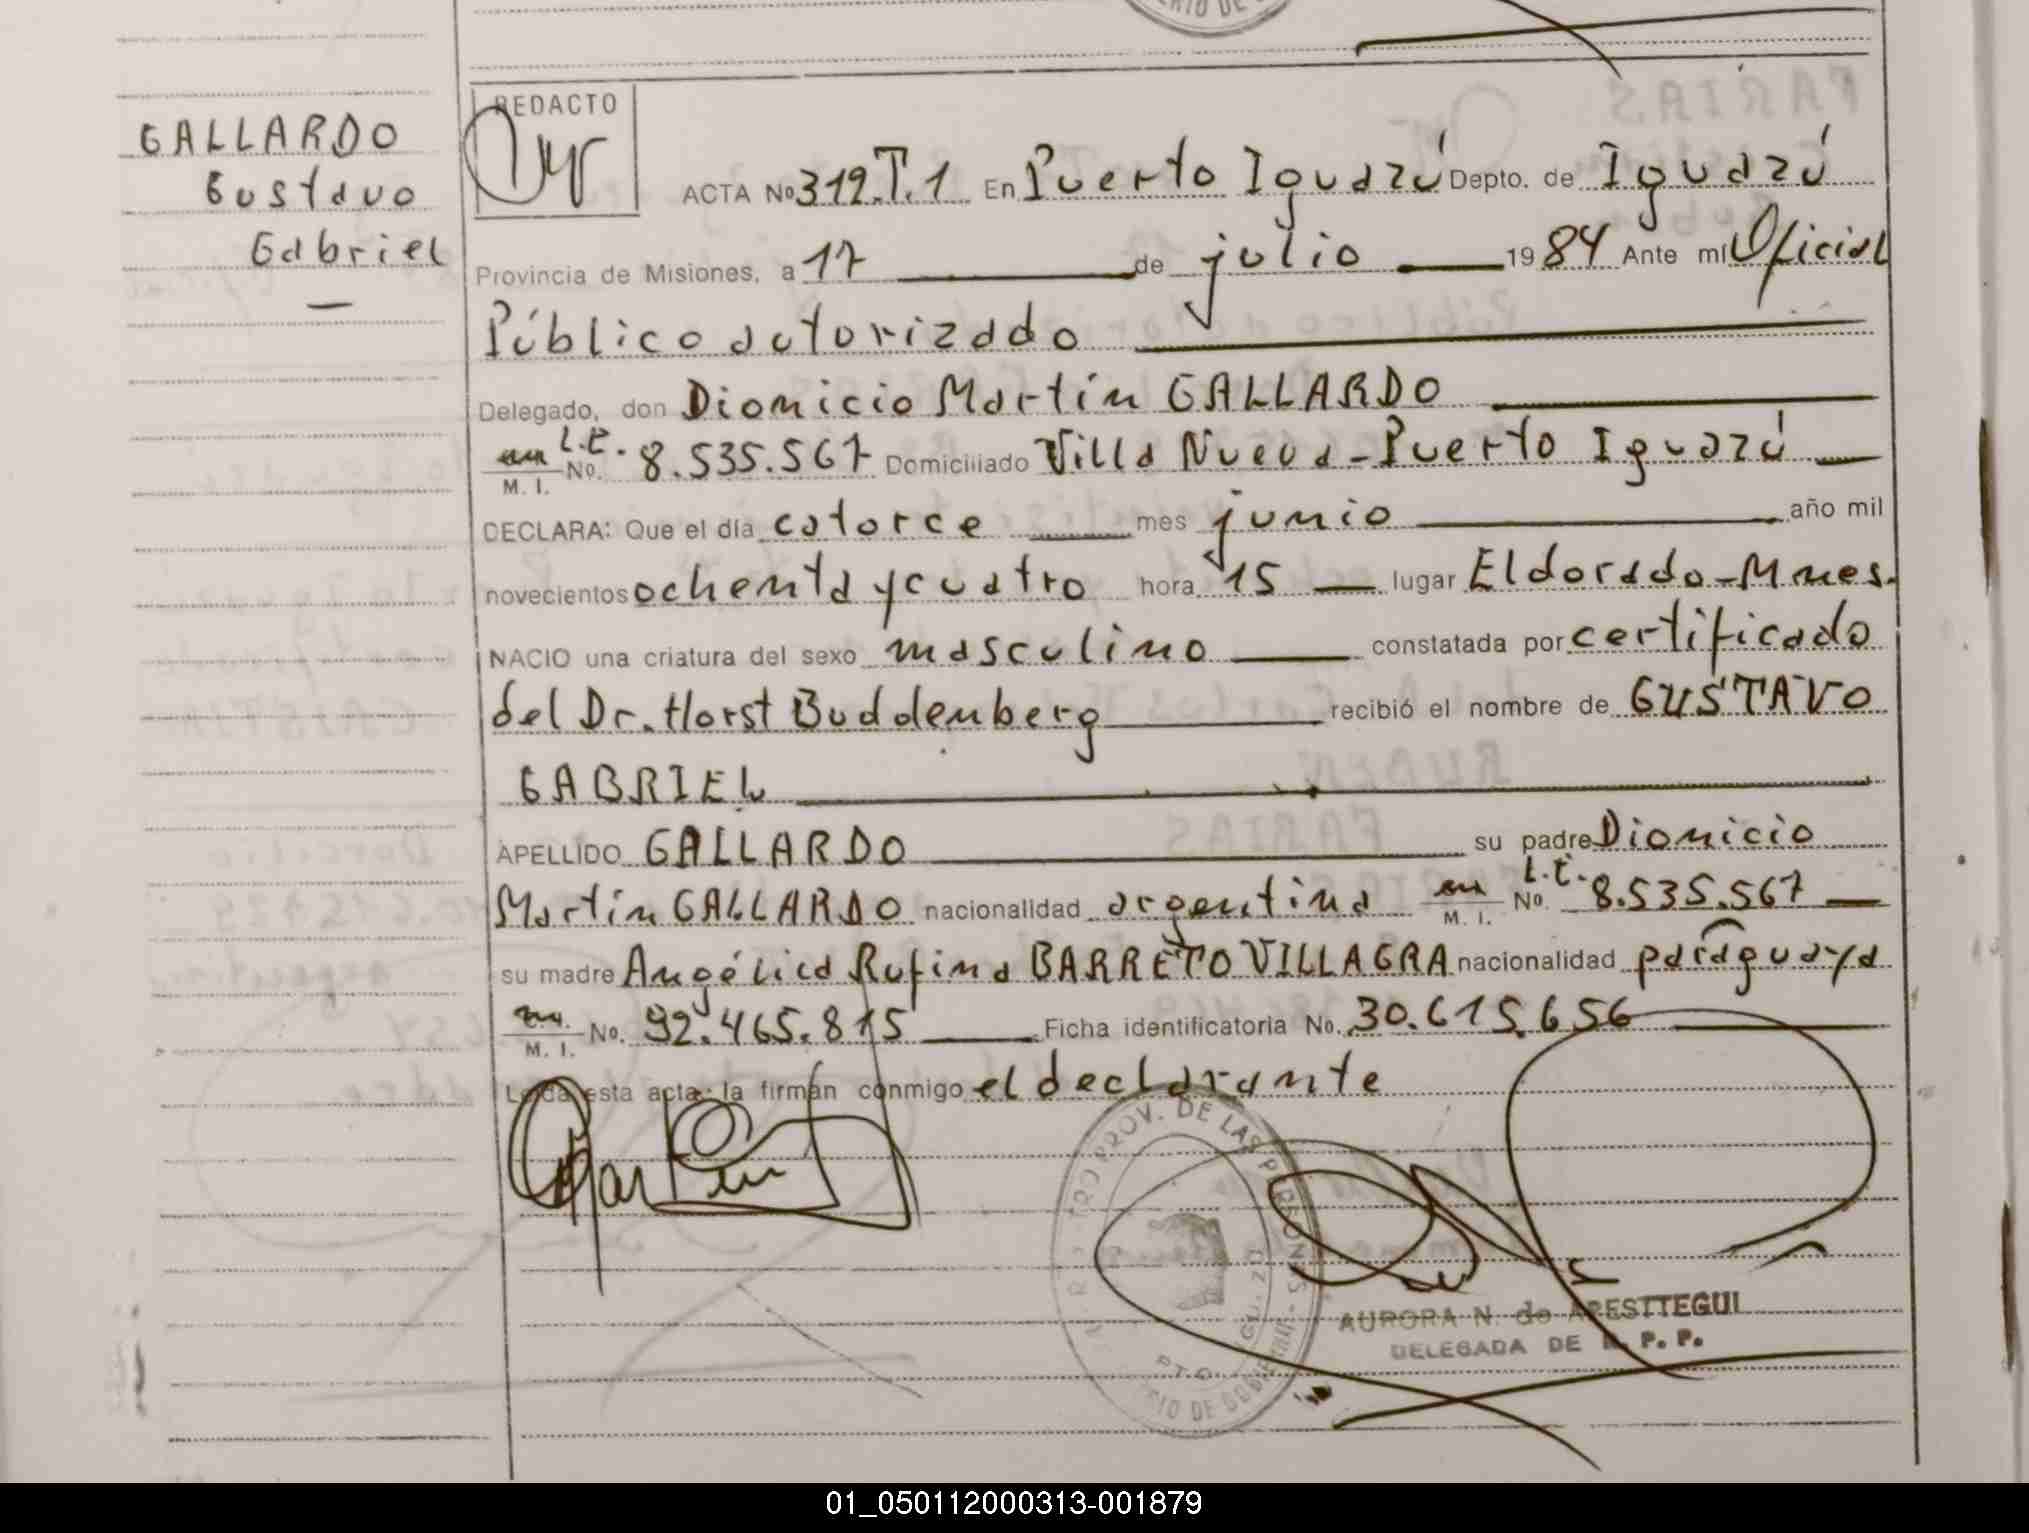 GALLARDO
Gustavo
Gabriel
—
REDACTO
ACTA Nº 312.T.1 En Puerto Iguazú Depto. de Iguazú
Provincia de Misiones, a 17 de julio 1984 Ante mí Oficial
Público autorizado
Delegado, don Dionicio Martín GALLARDO
M. I. No. L.E. 8.535.567 Domiciliado Villa Nueva - Puerto Iguazú
DECLARA: Que el día catorce mes junio año mil
novecientos ochenta y cuatro hora 15 lugar Eldorado-Mnes.
NACIO una criatura del sexo masculino constatada por certificado
del Dr. Horst Buddenberg recibió el nombre de GUSTAVO
GABRIEL
APELLIDO GALLARDO su padre Dionicio
Martín GALLARDO nacionalidad argentina M. I. No. L.E. 8.535.567
su madre Angélica Rufina BARRETO VILLAGRA nacionalidad paraguaya
M. I. No. 92.465.815 Ficha identificatoria No. 30.615.656
Leída esta acta; la firman conmigo el declarante
PROV. DE LAS PERSONAS
AURORA N. de ARESTTEGUI
DELEGADA DE R. P. P.
01_050112000313-001879